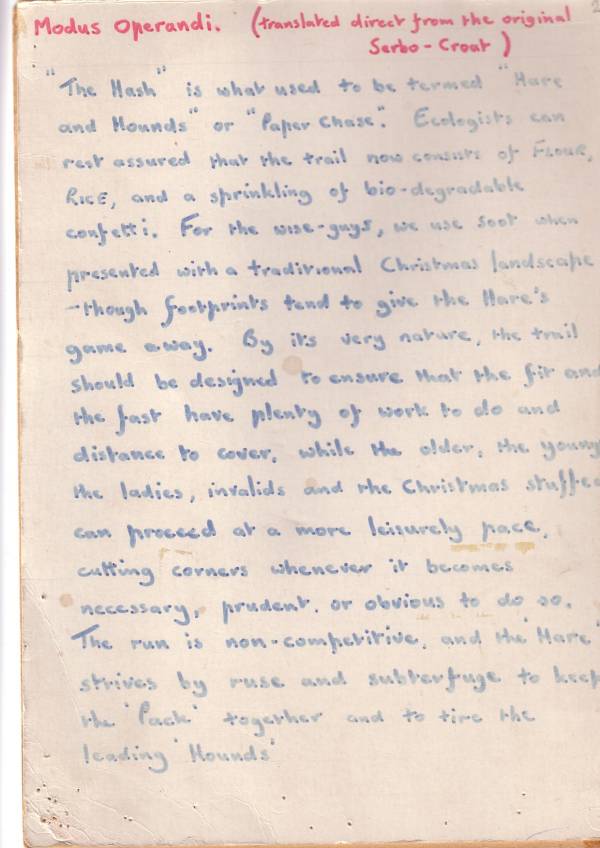 Modus Operandi. (translated direct from the original
Serbo-Croat)
2
"The Hash" is what used to be termed "Hare
and Hounds" or "Paper Chase". Ecologists can
rest assured that the trail now consists of FLOUR,
RICE, and a sprinkling of bio-degradable
confetti. For the wise-guys, we use soot when
presented with a traditional Christmas landscape
- though footprints tend to give the Hare's
game away. By its very nature, the trail
should be designed to ensure that the fit and
the fast have plenty of work to do and
distance to cover, while the older, the young
the ladies, invalids and the Christmas stuffed
can proceed at a more leisurely pace,
cutting corners whenever it becomes
necessary, prudent, or obvious to do so.
The run is non-competitive, and the 'Hare'
strives by ruse and subterfuge to keep
the 'Pack' together and to tire the
leading 'Hounds'